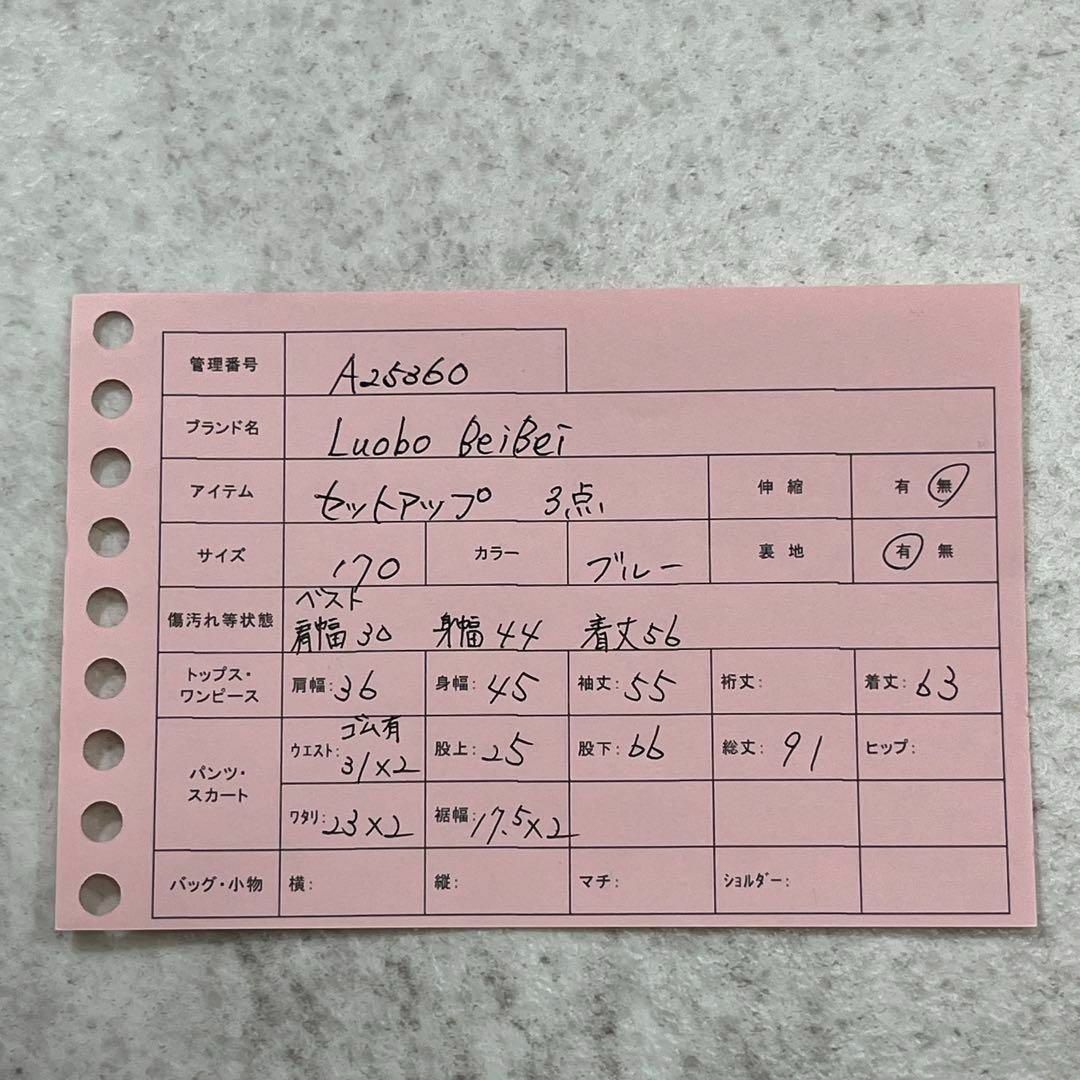 管理番号 A25360
ブランド名 Luobo BeiBei
アイテム セットアップ 3点 伸縮 有 無
サイズ 170 カラー ブルー 裏地 有 無
ベスト
傷汚れ等状態 肩幅30 身幅44 着丈56
トップス・ 肩幅:36 身幅:45 袖丈:55 裄丈: 着丈:63
ワンピース
ゴム有
パンツ・ ウエスト:31×2 股上:25 股下:66 総丈:91 ヒップ:
スカート
ワタリ:23×2 裾幅:17.5×2
バッグ・小物 横: 縦: マチ: ショルダー: